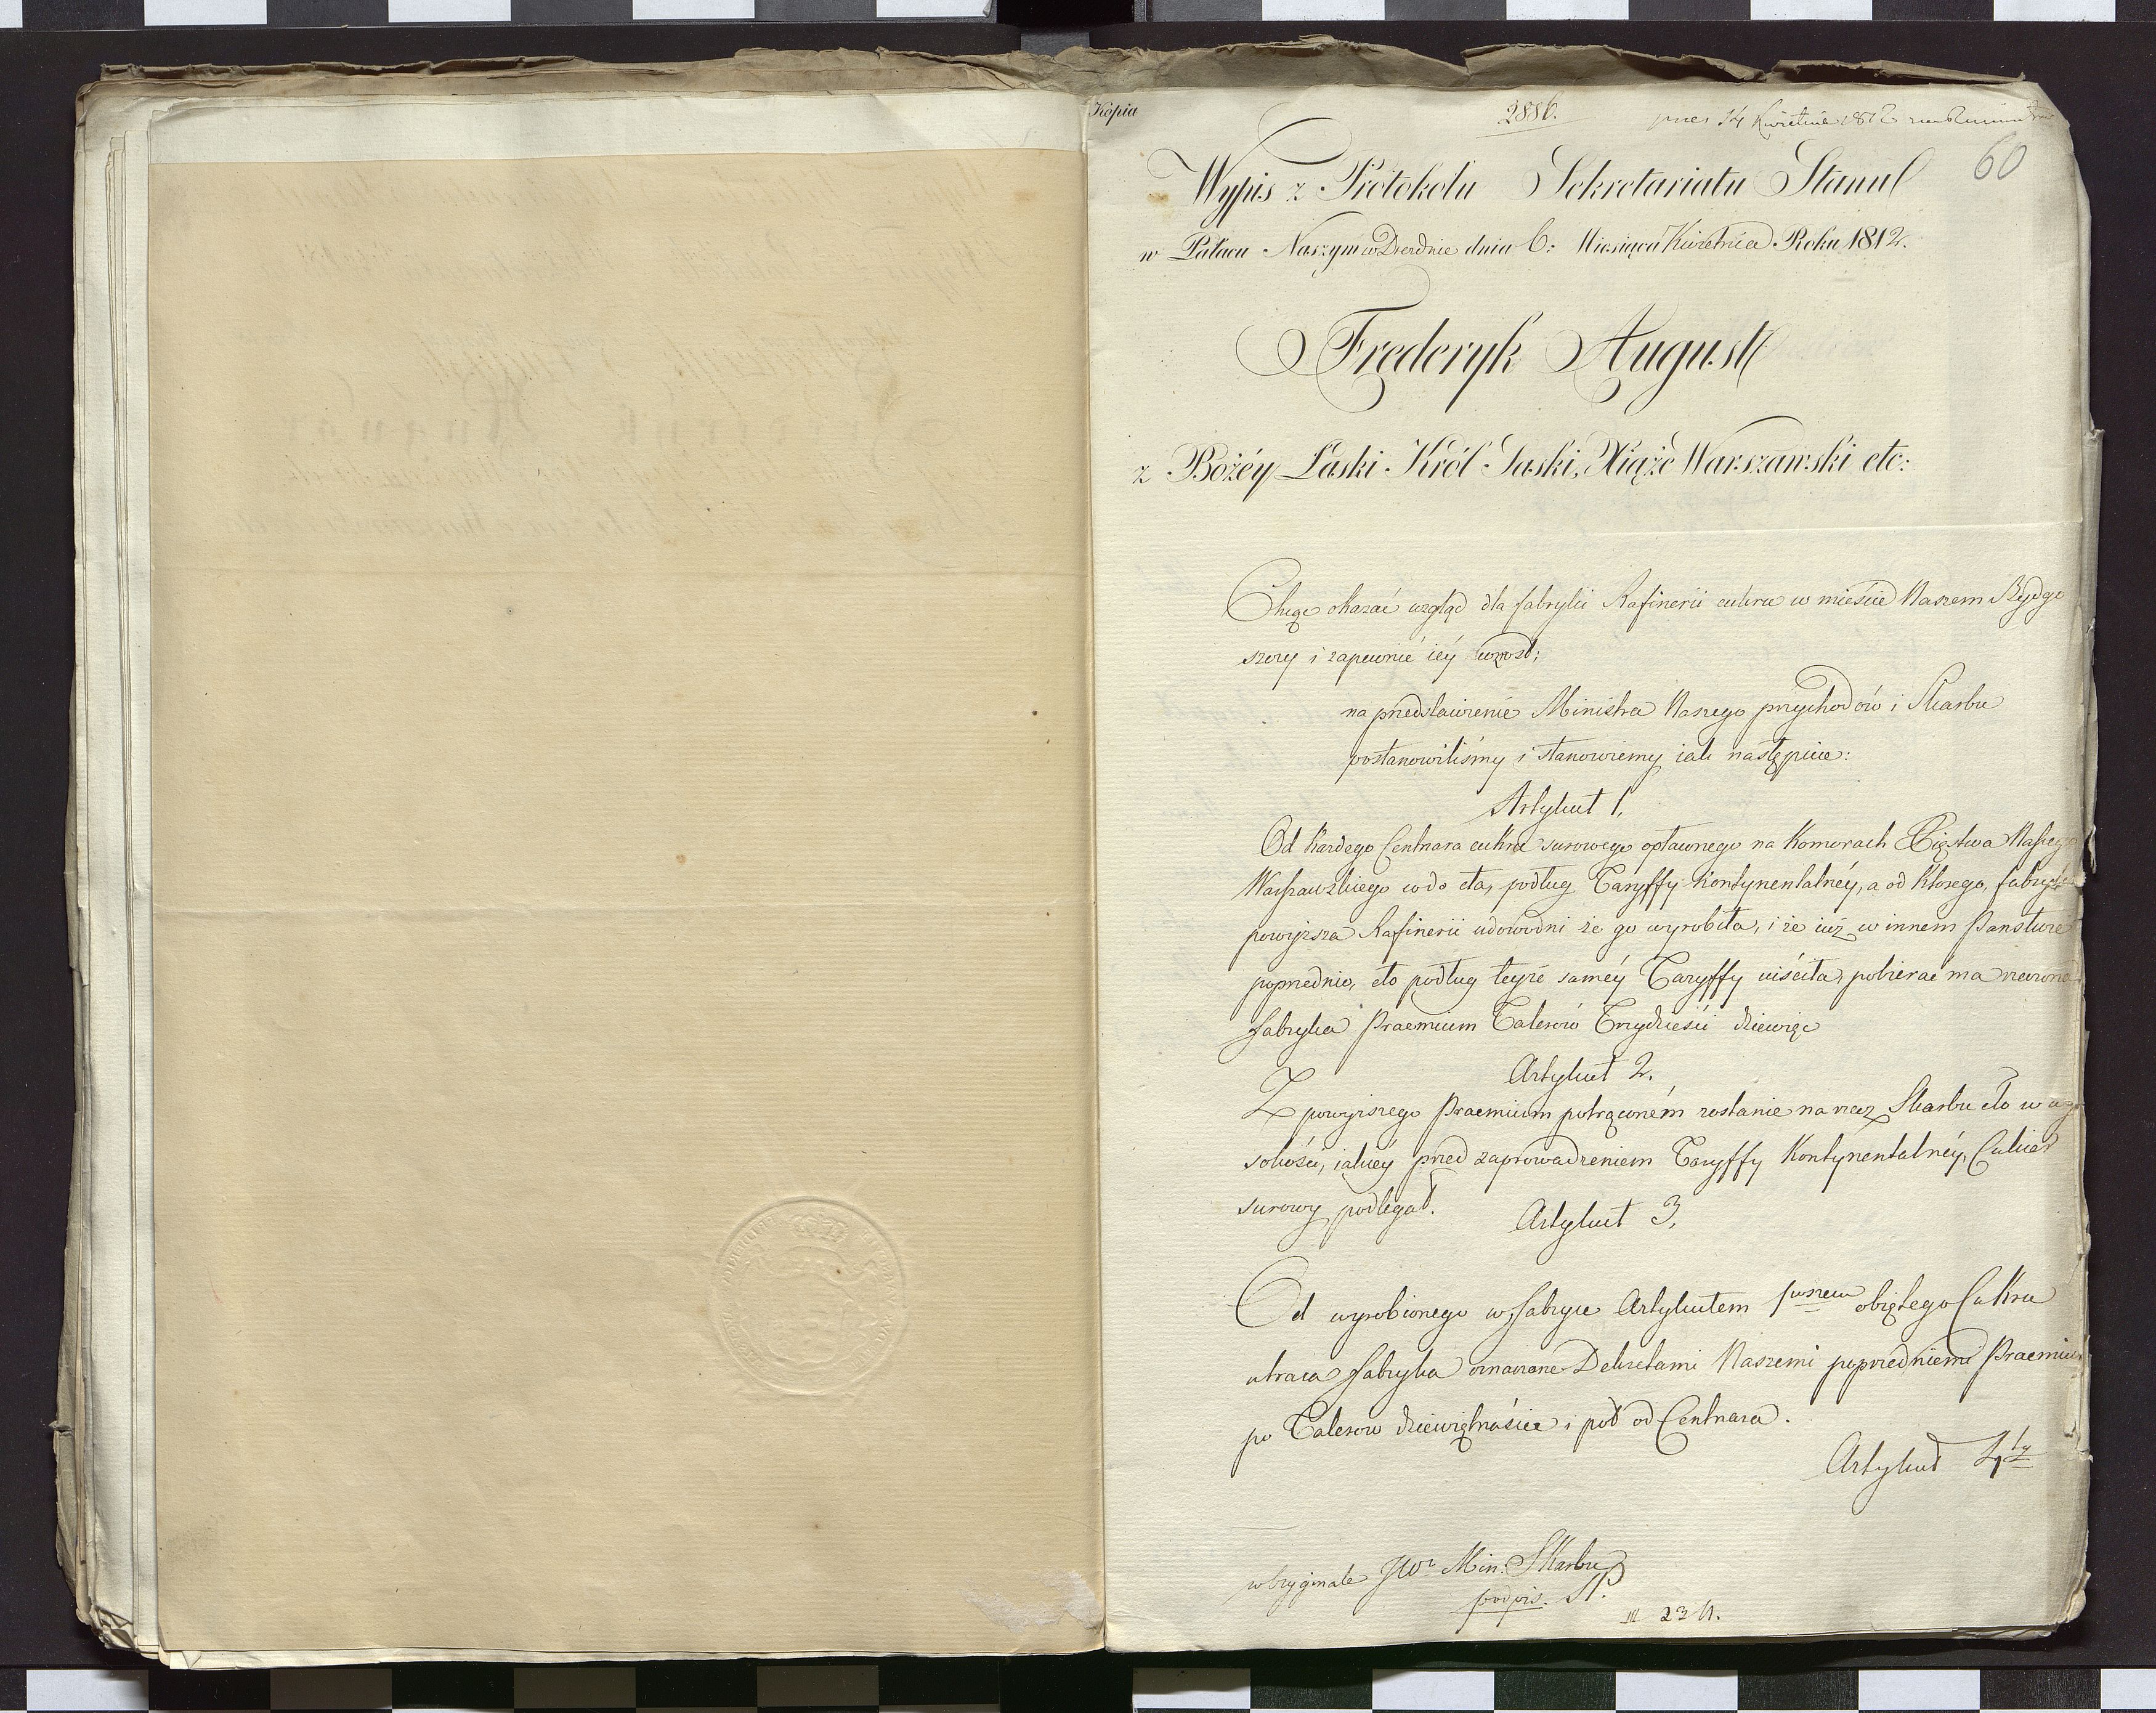 Kopia
2886.
pres 14 Kwietnia 1812
60
Wypis z Protokołu Sekretariatu Stanu
w Pałacu Naszym w Dreźnie dnia 6: Miesiąca Kwietnia Roku 1812.
Frederyk August
z Bożéy Łaski Król Saski, Xiążę Warszawski etc:
Chcąc okazać wzgląd dla fabryki Rafinerii cukru w mieście Naszem Bydgo
szczy i zapewnić iéy wzrost;
na przedstawienie Ministra Naszego przychodów i Skarbu
postanowiliśmy i stanowiemy iak następuie:
Artykuł 1.
Od każdego Centnara cukru surowego opłaconego na Komorach Xięstwa Naszego
Warszawskiego co do cła, podług Taryffy Kontynentalnéy, a od którego, fabryka
powyższa Rafinerii udowodni że go wyrobiła, i że iuż w innem Państwie
poprzednio, cło podług teyże saméy Taryffy uiściła, pobierać ma rzeczona
fabryka Praemium Talerów Trzydzieści dziewięć
Artykuł 2.
Z powyższego Praemium potrąconém zostanie na rzecz Skarbu cło w wy
sokości, iakiéy przed zaprowadzeniem Taryffy Kontynentalnéy, Cukier
surowy podlegał.
Artykuł 3.
Od wyrobionego w fabryce Artykułem 1wszem obiętego Cukru
utraca fabryka oznaczone Dekretami Naszemi poprzedniemi Praemium
po Talerow dziewiętnaście i pół od Centnara.
Artykuł 4ty
w oryginale JWr Min: Skarbu
podpis. St.
III 234.